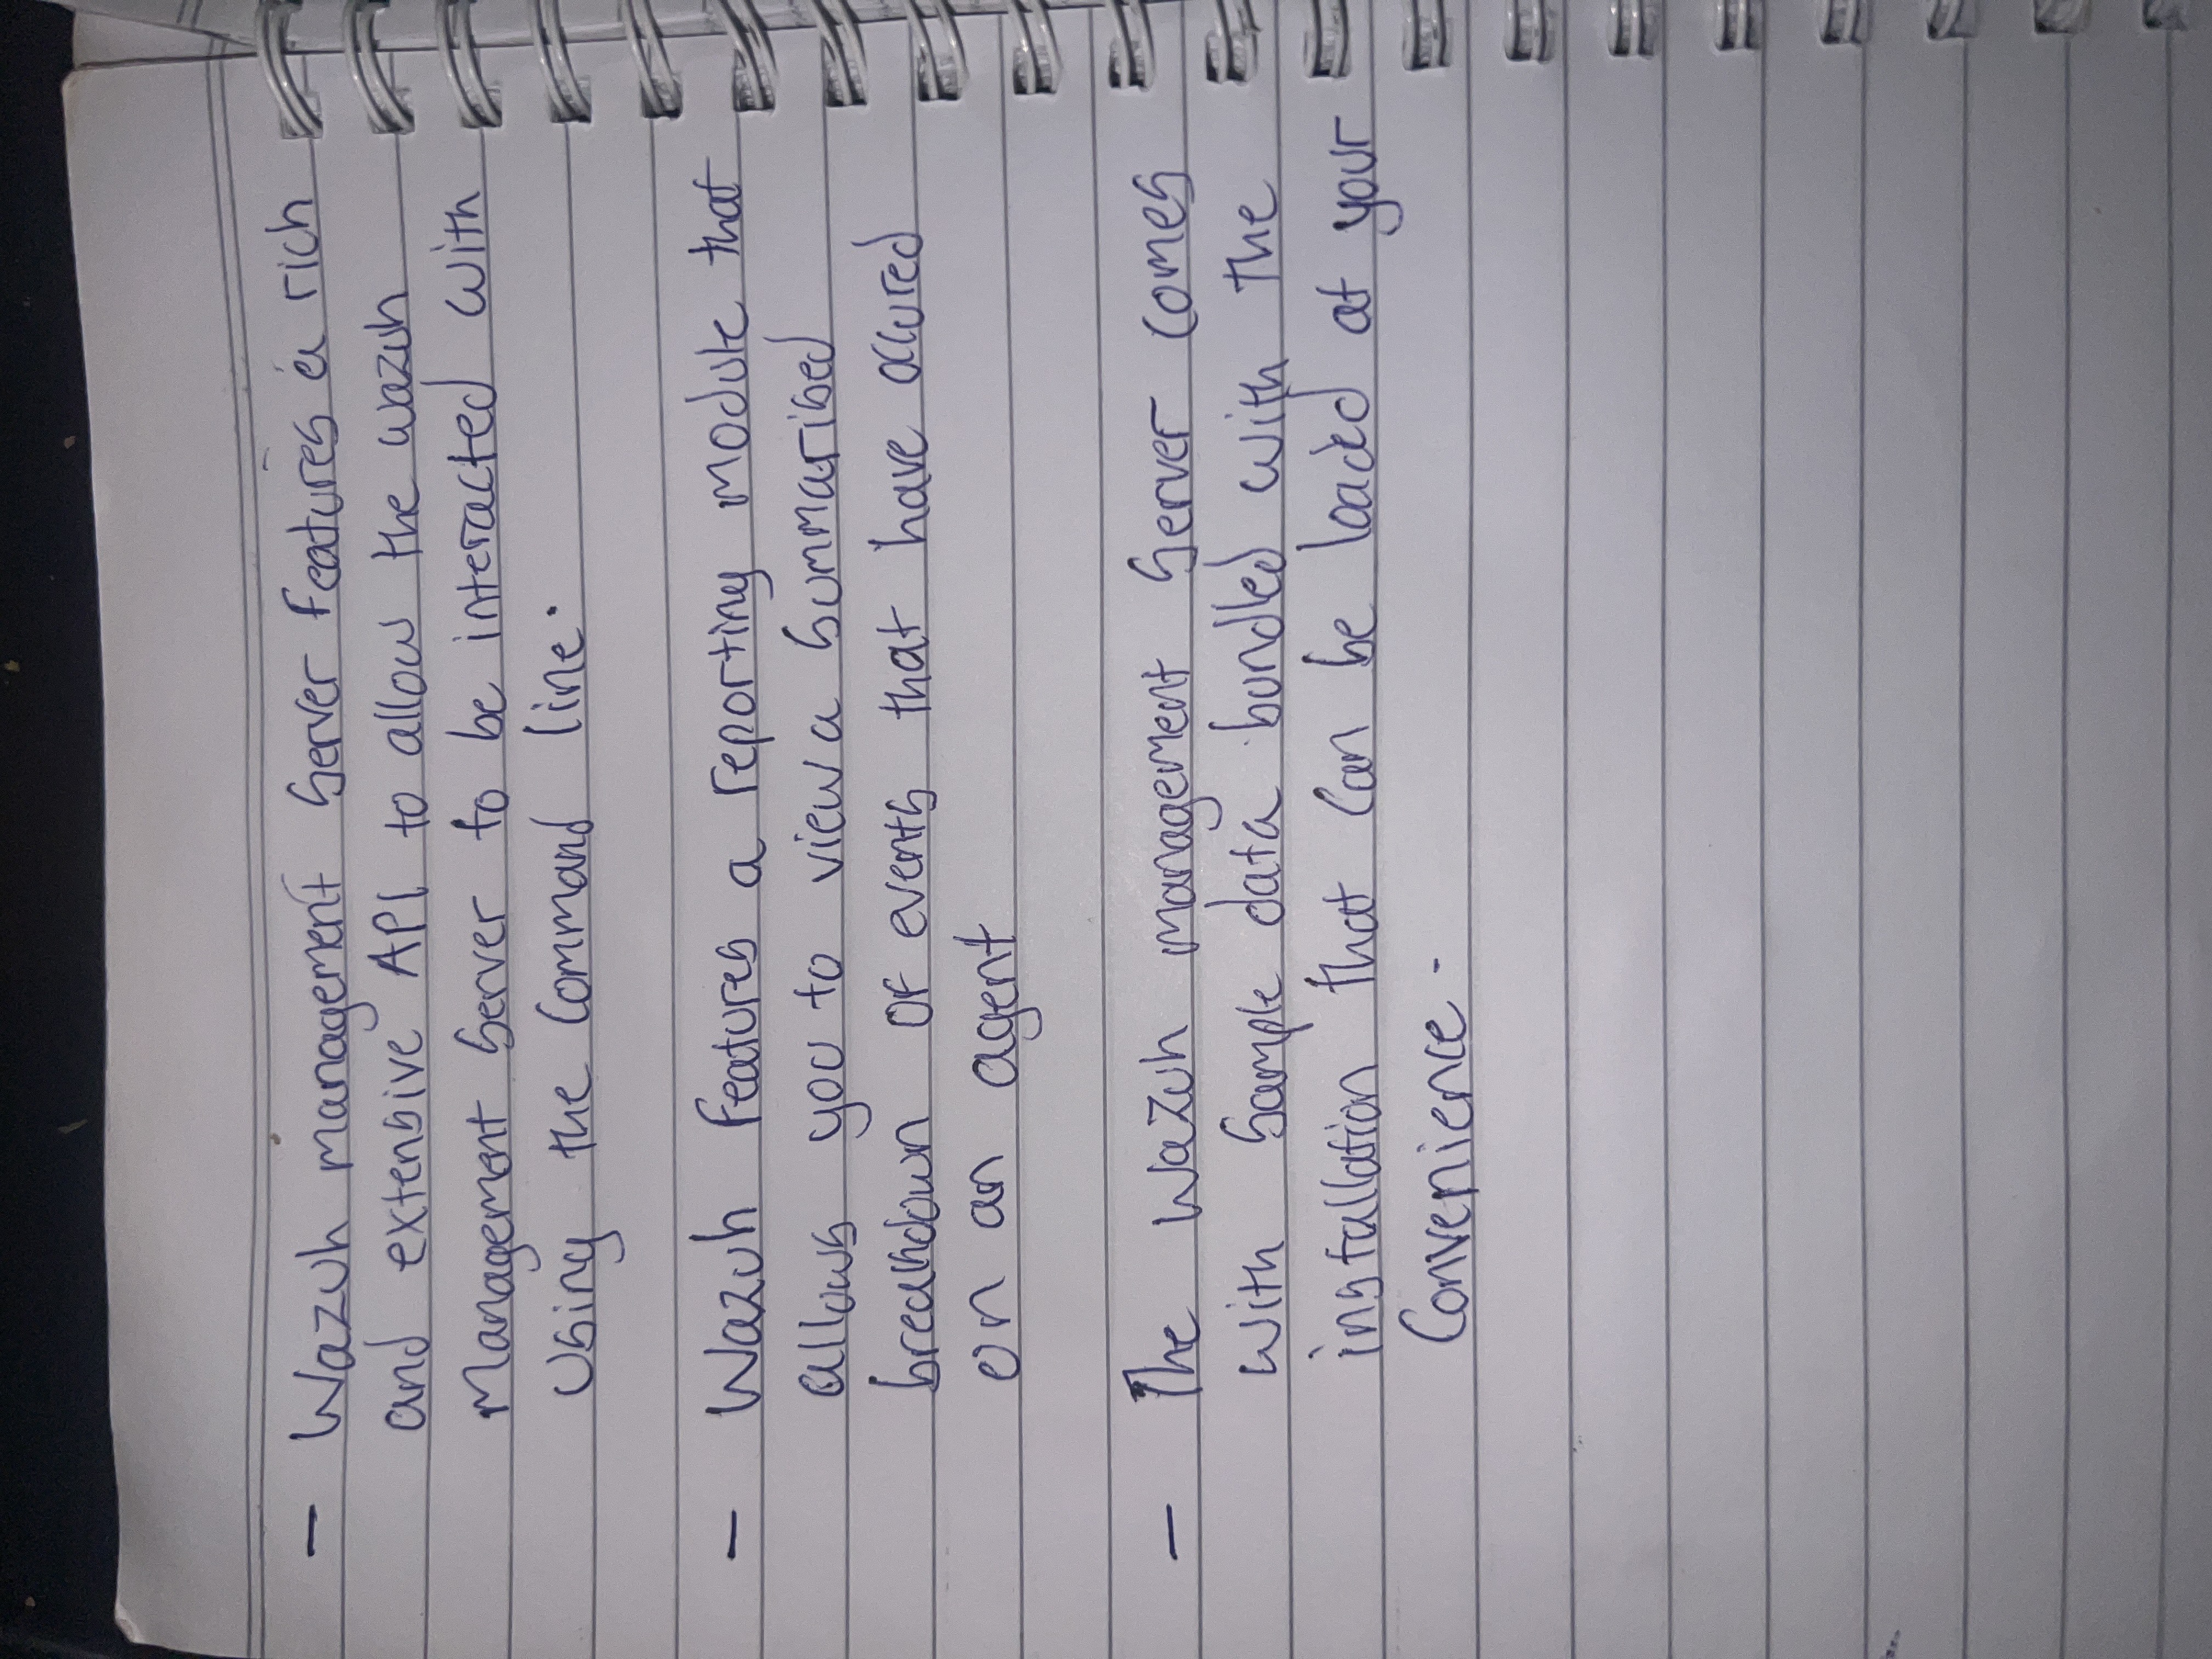 - Wazuh management Server features a rich
and extensive API to allow the wazuh
Management Server to be interacted with
Using the Command line.
- Wazuh features a reporting module that
allows you to view a Summarised
breakdown of events that have occured
on an agent
- The Wazuh management Server comes
with Sample data bundled with the
installation that can be loaded at your
Convenience.